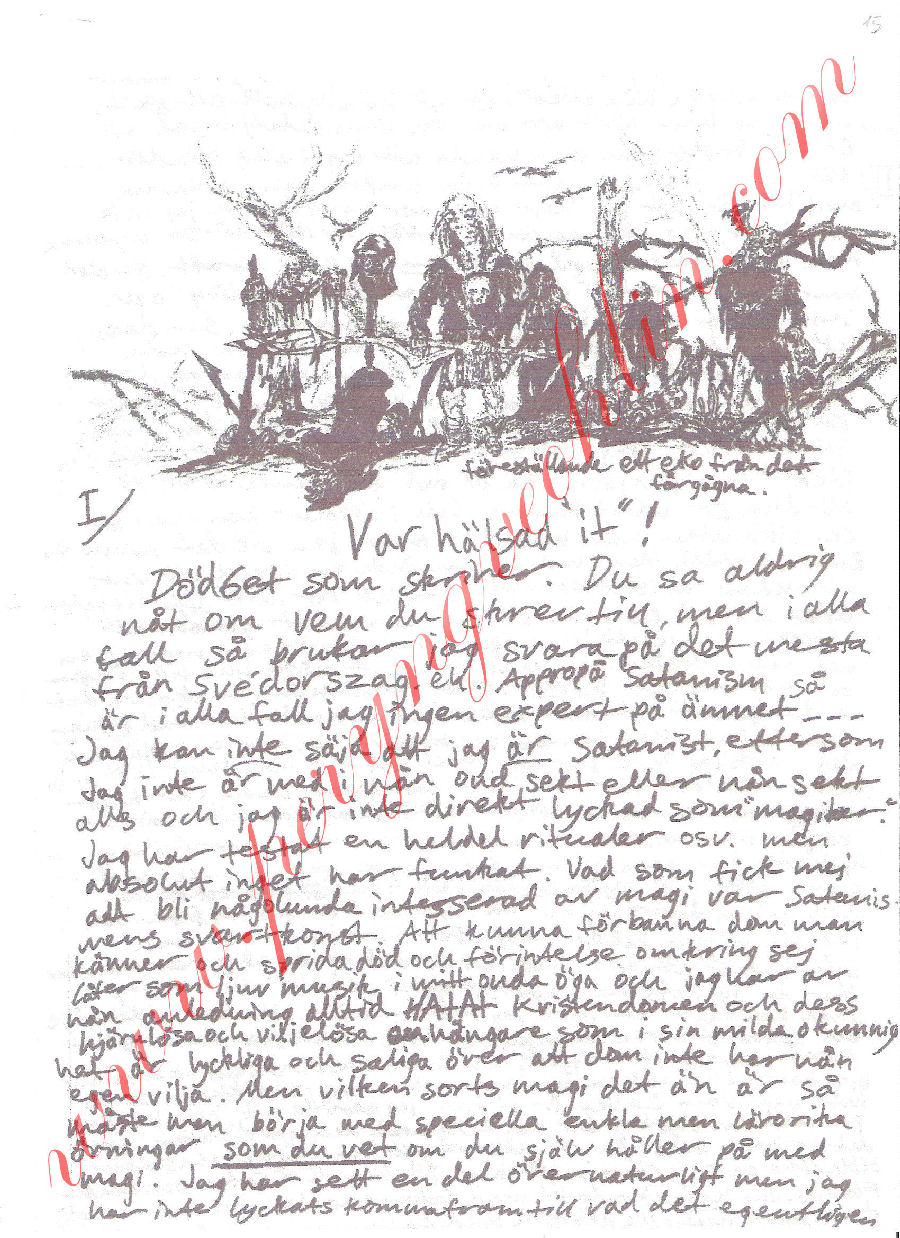 15
föreställande ett eko från det
förgågna.
I/
Var hälsad "it"!
Död6et som skriver. Du sa aldrig
nåt om vem du skrev till, men i alla
fall så brukar jag svara på det mesta
från Svédorszag. eh. Appropå Satanism så
är i alla fall jag ingen expert på ämnet ---
Jag kan inte säja att jag är Satanist, eftersom
Jag inte är med i nån ond sekt eller nån sekt
alls och jag är inte direkt lyckad som "magiker."
Jag har testat en heldel ritualer osv. men
absolut inget har funkat. Vad som fick mej
att bli någolunda intesserad av magi var Satanis-
mens svartkonst. Att kunna förbanna dom man
känner och sprida död och förintelse omkring sej
låter som ljuv musik i mitt onda öga och jag har av
nån anledning alltid HATAT Kristendomen och dess
hjärnlösa och viljelösa anhängare som i sin milda okunnig
het är lyckliga och saliga över att dom inte har nån
egen vilja. Men vilken sorts magi det än är så
måste man börja med speciella enkla men lärorika
övningar som du vet om du själv håller på med
magi. Jag har sett en del övernaturligt men jag
har inte lyckats komma fram till vad det egentligen
www.faryngvechlin.com